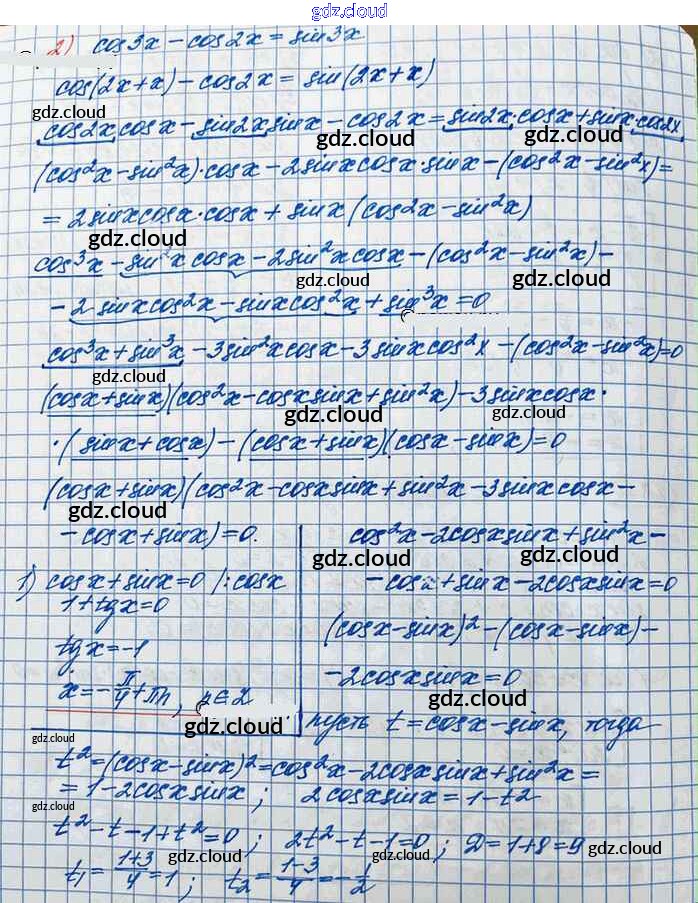 gdz.cloud
2) cos3x - cos2x = sin3x
cos(2x+x) - cos2x = sin(2x+x)
gdz.cloud
cos2x cosx - sin2x sinx - cos2x = sin2x·cosx + sinx·cos2x
gdz.cloud gdz.cloud
(cos²x - sin²x)·cosx - 2sinxcosx·sinx - (cos²x - sin²x) =
gdz.cloud
= 2sinxcosx·cosx + sinx(cos2x - sin²x)
gdz.cloud
cos³x - sin²x cosx - 2sin²x cosx - (cos²x - sin²x) -
gdz.cloud
- 2 sinxcos²x - sinxcos²x + sin³x = 0
gdz.cloud
cos³x + sin³x - 3sin²xcosx - 3sinxcos²x - (cos²x - sin²x) = 0
gdz.cloud
(cosx + sinx)(cos²x - cosxsinx + sin²x) - 3sinxcosx·
gdz.cloud
·(sinx + cosx) - (cosx + sinx)(cosx - sinx) = 0
gdz.cloud
(cosx + sinx)(cos²x - cosxsinx + sin²x - 3sinxcosx -
gdz.cloud
- cosx + sinx) = 0.
cos²x - 2cosxsinx + sin²x -
gdz.cloud gdz.cloud
1) cosx + sinx = 0 /:cosx
- cosx + sinx - 2cosxsinx = 0
1 + tgx = 0
(cosx - sinx)² - (cosx - sinx) -
gdz.cloud
tgx = -1
- 2cosxsinx = 0
x = -π/4 + πn, n∈Z
gdz.cloud
gdz.cloud
пусть t = cosx - sinx, тогда
gdz.cloud
t² = (cosx - sinx)² = cos²x - 2cosxsinx + sin²x =
= 1 - 2cosxsinx; 2cosxsinx = 1 - t²
gdz.cloud
t² - t - 1 + t² = 0; 2t² - t - 1 = 0; D = 1 + 8 = 9
gdz.cloud gdz.cloud
t₁ = (1+3)/4 = 1; t₂ = (1-3)/4 = -1/2
gdz.cloud gdz.cloud